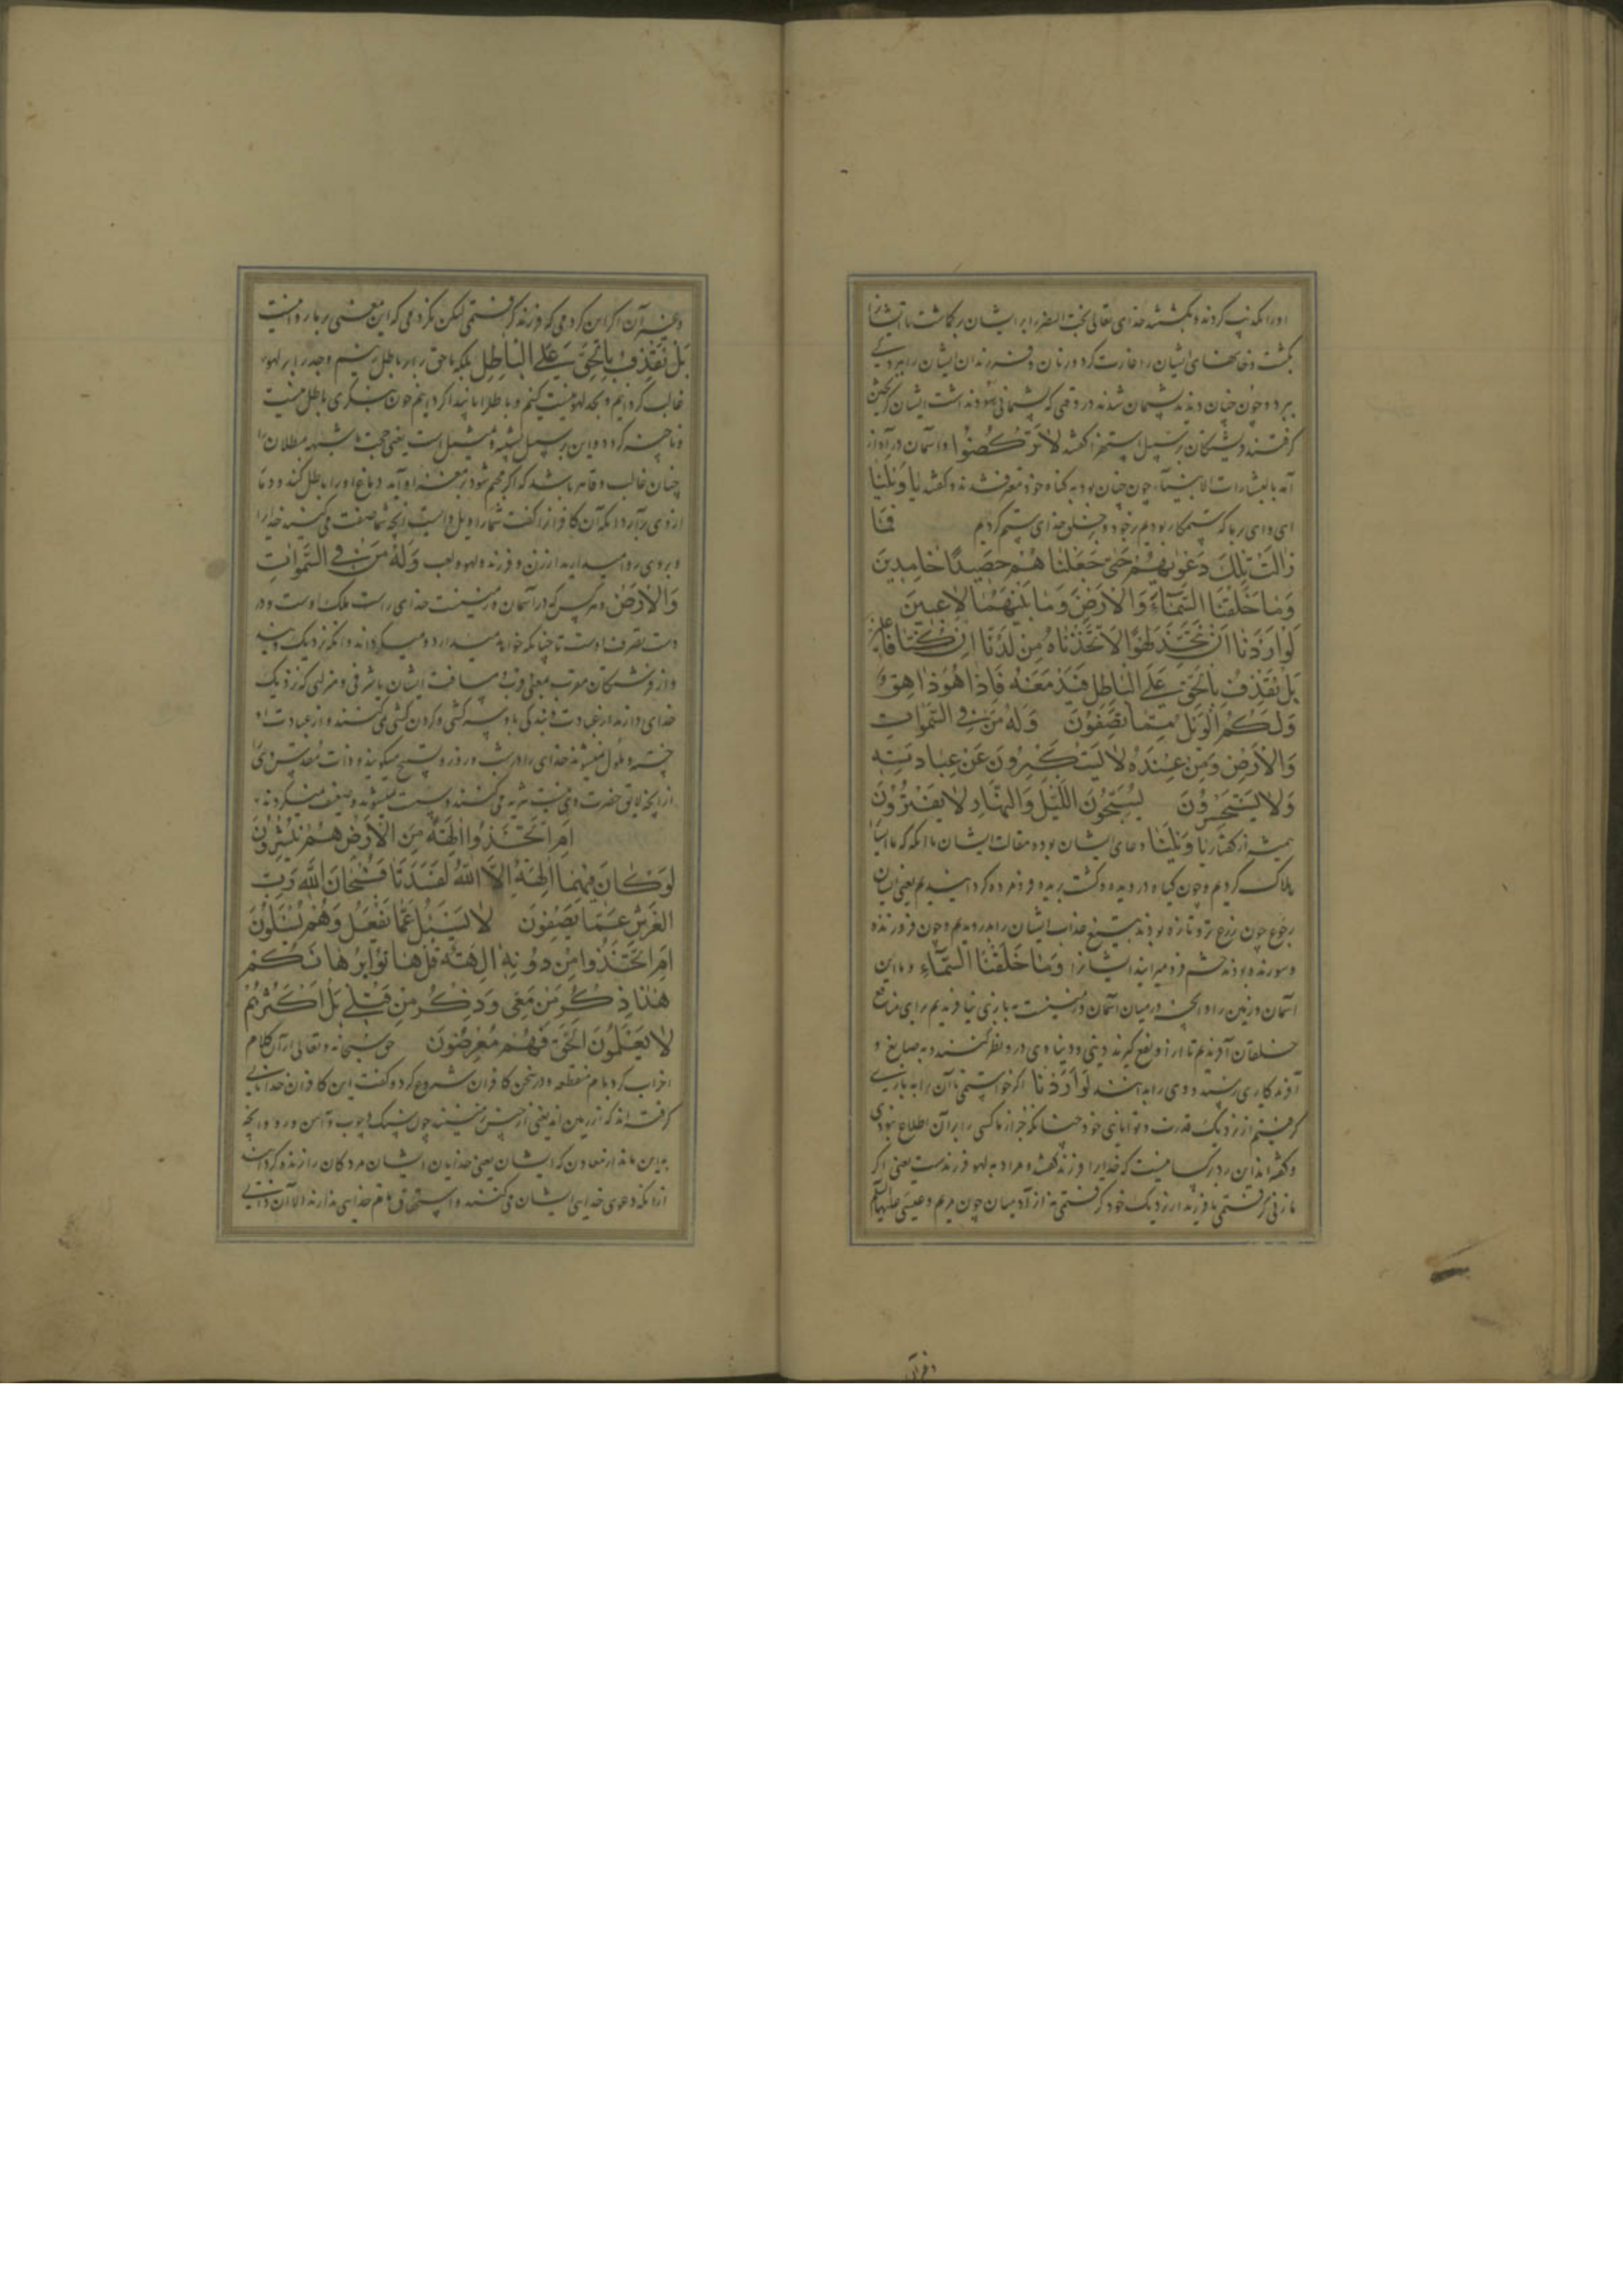 اورا تکذیب کردند و بکشتند خدای تعالی بخت النصر را بر ایشان برکاشت تا ایشانرا
بکشت و خانهای ایشان را غارت کرد و زنان و فرزندان ایشان را ببردگی
ببرد و چون چنان دیدند پشیمان شدند در وقتی که پشیمانی سود نداشت ایشان گریختن
گرفتند فرشتگان بر سبیل استهزا گفتند لَا تَرْكُضُوا و از آسمان در آواز
آمد یا لثارات الانبیاء چون چنان بود به گناه خود معترف شدند و گفتند یَا وَیْلَنَا
ای وای بر ما که ستمکار بودیم بر خود و بر خلق خدای ستم کردیم فَمَا
زَالَتْ تِلْكَ دَعْوٰیهُمْ حَتّٰی جَعَلْنَاهُمْ حَصِیدًا خَامِدِینَ
وَمَا خَلَقْنَا السَّمَآءَ وَالْاَرْضَ وَمَا بَیْنَهُمَا لَاعِبِینَ
لَوْ اَرَدْنَا اَنْ نَتَّخِذَ لَهْوًا لَاتَّخَذْنَاهُ مِنْ لَدُنَّا اِنْ كُنَّا فَاعِلِینَ
بَلْ نَقْذِفُ بِالْحَقِّ عَلَی الْبَاطِلِ فَیَدْمَغُهُ فَاِذَا هُوَ زَاهِقٌ
وَلَكُمُ الْوَیْلُ مِمَّا تَصِفُونَ وَلَهُ مَنْ فِی السَّمٰوَاتِ
وَالْاَرْضِ وَمَنْ عِنْدَهُ لَا یَسْتَكْبِرُونَ عَنْ عِبَادَتِهِ
وَلَا یَسْتَحْسِرُونَ یُسَبِّحُونَ اللَّیْلَ وَالنَّهَارَ لَا یَفْتُرُونَ
همیشه از گفتار یَا وَیْلَنَا دعای ایشان بود و مقالت ایشان تا آنکه که ما ایشانرا
هلاک کردیم و چون گیاه درویده و کشت بریده و فرومرده گردانیدیم یعنی ایشان
چون زرع تر و تازه بودند به تیغ عذاب ایشان را بدرویدیم و چون فروزنده
و سوزنده بودند به خشم فرو میرانیدیم ایشانرا وَمَا خَلَقْنَا السَّمَآءَ و ما این
آسمان و زمین را و آنچه در میان آسمان و زمینست به بازی نیافریدیم برای منافع
خلقان آفریدیم تا از او نفع گیرند دینی و دنیاوی و در او نظر کنند و به صانع و
آفریدگاری رسند و وی را بدانند لَوْ اَرَدْنَا اگر خواستیمی تا آن را به بازی
گرفتیم از نزدیک قدرت و توانایی خود چنانکه جز از ما کسی را بر آن اطلاع نبودی
و گفته‌اند این رد بر کسانیست که خدای را فرزند گفتند و مراد به لهو فرزندست یعنی اگر
ما زنی گرفتمی یا فرزند از نزدیک خود گرفتمی نه از آدمیان چون مریم و عیسی علیهما السلم
و غیر آن
و غیر آن اگر این کردمی که فرزند گرفتمی لیکن نکردمی که این معنی بر ما روا نیست
بَلْ نَقْذِفُ بِالْحَقِّ عَلَی الْبَاطِلِ بلکه ما حق را بر باطل زنیم و جد را بر لهو
غالب گردانیم و بجد لهو نیست کنیم و باطل ناپیدا گردانیم چون بنگری باطل نیست
و ناچیز گردد و این بر سبیل تشبیه و تمثیل است یعنی حجت ما شبهه مبطلان را
چنان غالب و قاهر باشد که اگر مجسم شود بر مغز او آید و دماغ او را باطل کند و دمار
از وی برآرد آنکه آن کافران را گفت شما را ویل و وایست از آنچه شما صفت می‌کنید خدایرا
و بر وی روا میدارید از زن و فرزند و لهو و لعب وَلَهُ مَنْ فِی السَّمٰوَاتِ
وَالْاَرْضِ و هر کس که در آسمان و زمینست خدای راست ملک اوست و در
دست تصرف اوست تا چنانکه خواهد میدارد و میگرداند و آنکه نزدیک ویند
از فرشتگان مقرب بمعنی قرب مسافت ایشان با شرفی و منزلتی که نزدیک
خدای دارند از عبادت و بندگی باو سرکشی و گردن کشی نمی‌کنند و از عبادت او
خسته و ملول نمیشوند خدای را در شب و روز تسبیح میگویند و ذات مقدس ویرا
از آنچه لایق حضرت وی نیست تنزیه می‌کنند و سست نمیشوند و ضعیف نمیگردند
اَمِ اتَّخَذُوا اٰلِهَةً مِنَ الْاَرْضِ هُمْ یُنْشِرُونَ
لَوْ كَانَ فِیهِمَا اٰلِهَةٌ اِلَّا اللّٰهُ لَفَسَدَتَا فَسُبْحَانَ اللّٰهِ رَبِّ
الْعَرْشِ عَمَّا یَصِفُونَ لَا یُسْئَلُ عَمَّا یَفْعَلُ وَهُمْ یُسْئَلُونَ
اَمِ اتَّخَذُوا مِنْ دُونِهِ اٰلِهَةً قُلْ هَاتُوا بُرْهَانَكُمْ
هٰذَا ذِكْرُ مَنْ مَعِیَ وَذِكْرُ مَنْ قَبْلِی بَلْ اَكْثَرُهُمْ
لَا یَعْلَمُونَ الْحَقَّ فَهُمْ مُعْرِضُونَ حق سبحانه و تعالی از آن کلام
اضراب کرد بام منقطعه و در سخن کافران شروع کرد و گفت این کافران خدایانی
گرفته‌اند که از زمین‌اند یعنی از جنس زمینند چون سنگ و چوب و آهن و روی و آنچه
به این ماند از معادن که ایشان یعنی خدایان ایشان مردگان را زنده گردانند
از آنکه دعوی خدایی ایشان می‌کنند و استحقاق نام خدایی ندارند الا آن ذاتی